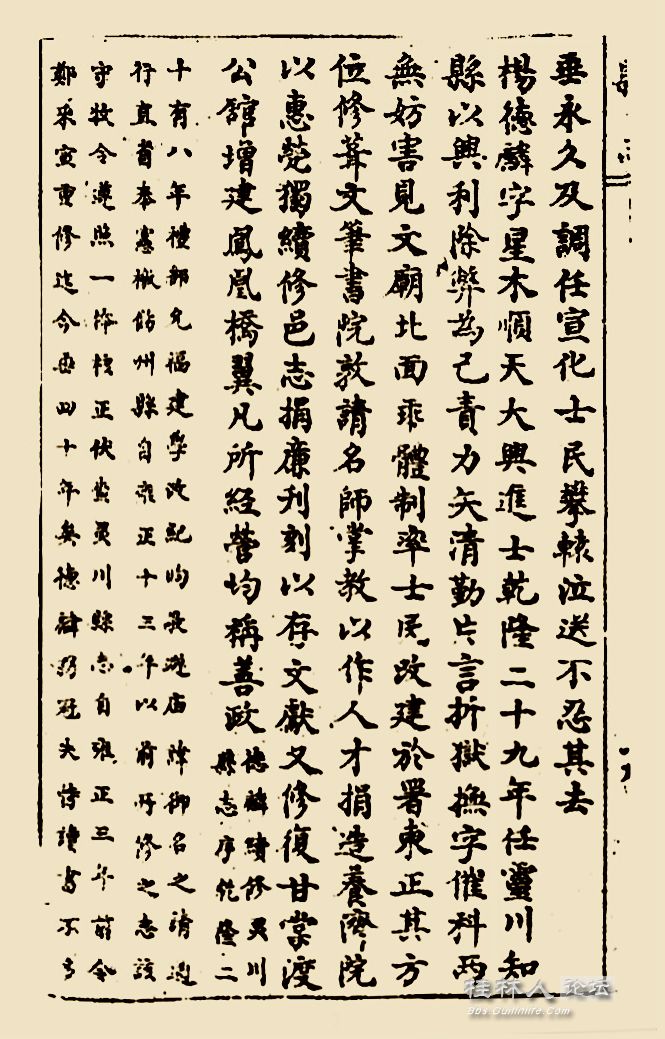 垂永久及調任宣化士民攀轅泣送不忍其去
楊德麟字星木順天大興進士乾隆二十九年任靈川知
縣以興利除弊為己責力矢清勤片言折獄撫字催科兩
無妨害見文廟北面乖體制率士民改建於署東正其方
位修葺文筆書院敦請名師掌教以作人才捐造養濟院
以惠煢獨續修邑志捐廉刋刻以存文獻又修復甘棠渡
公館增建鳳凰橋翼凡所經營均稱善政
德麟續修灵川
縣志序乾隆二
十有八年禮部允福建學政紀昀避庙諱御名之請通
行直省奉憲檄飭州縣自雍正十三年以前所修之志該
守牧令遵照一体核正伏灵川縣志自雍正三年前令
鄭采宣重修迄今四十年矣德冠失恃讀書不
桂林人论坛
Bbs.Guilinlife.Com